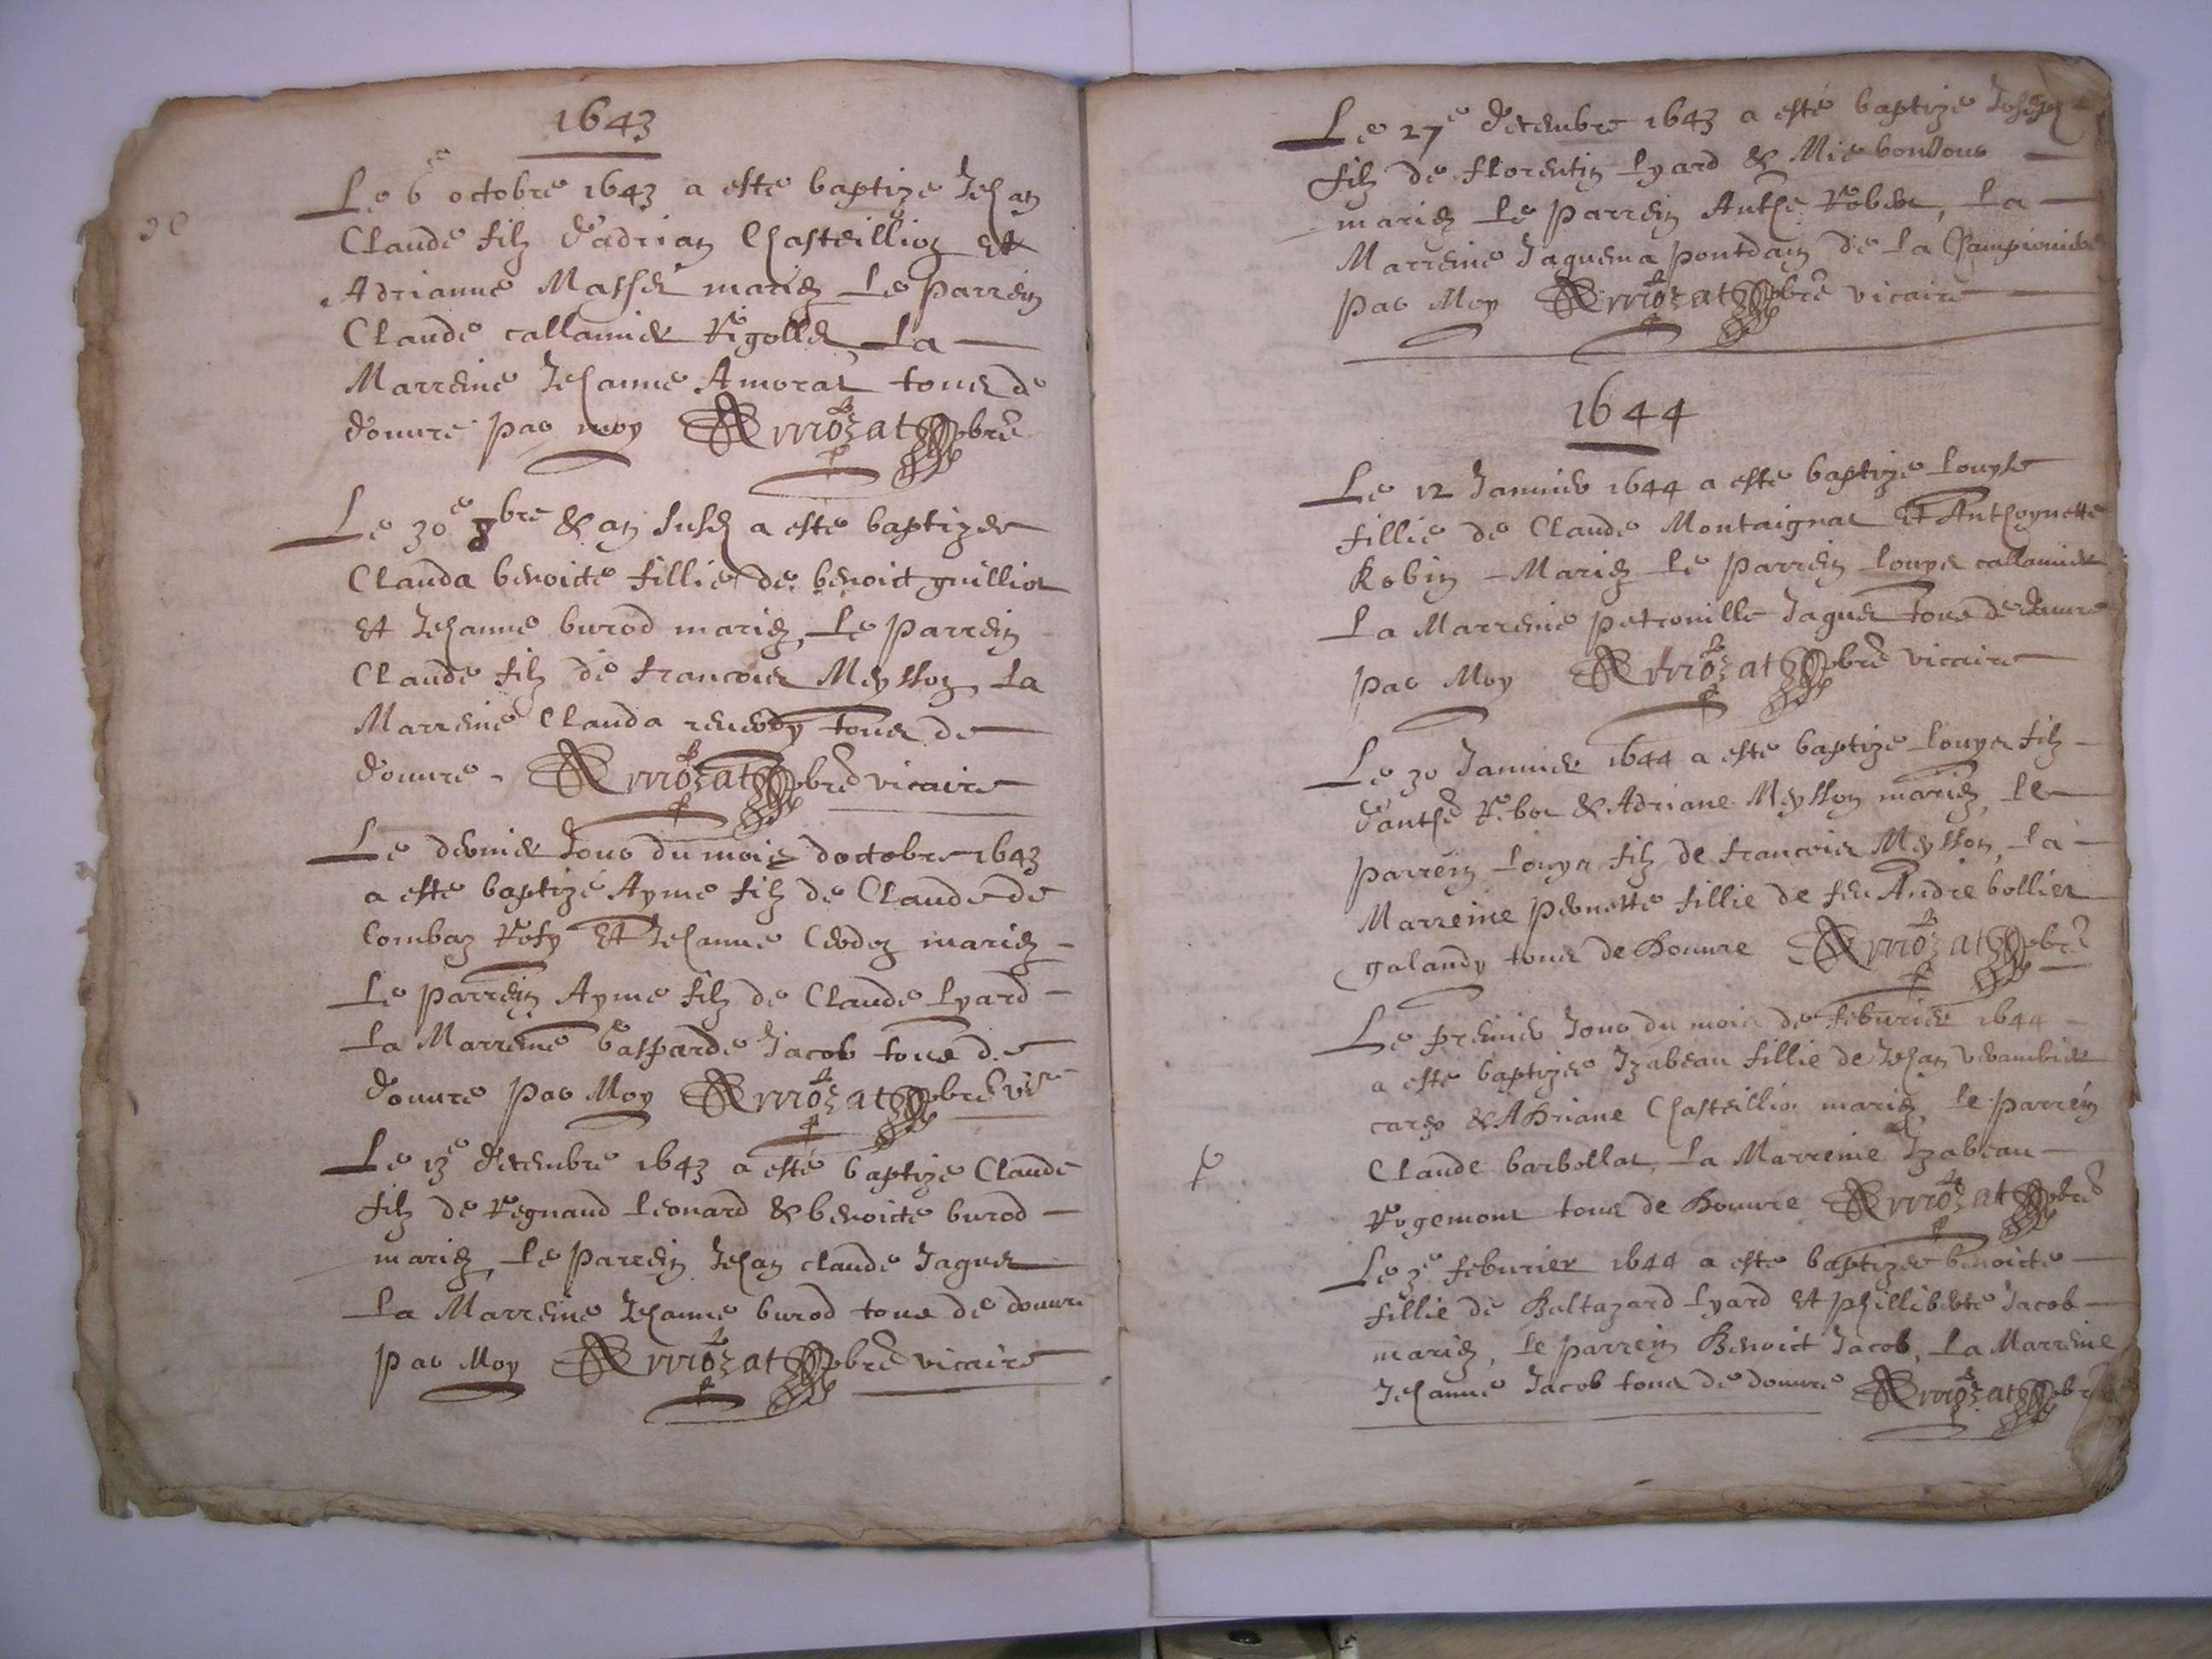 1643
Le 6e octobre 1643 a este baptize Jehan
Claude filz d'adrian Chasteillion et
Adrianne Masset mariez le parrein
Claude callamier Rigollet, La
Marreine Jehanne Amorat tous de
douvre par moy Arrozat pbre
Le 30e 8bre & an susd a este baptizee
Clauda benoicte fillie de benoict guilliot
et Jehanne burod mariez, Le parrein
Claude filz de francois Meysson, La
Marreine Clauda tous de
douvre. Arrozat pbre vicaire
Le dernier Jour du mois doctobre 1643
a este baptizé Ayme filz de Claude de
Combaz et Jehanne mariez
Le parrein Ayme filz de Claude Lyard
La Marreine Gasparde Jacob tous de
douvre par Moy Arrozat pbre vire
Le 13e decembre 1643 a esté baptize Claude
filz de Regnaud Leonard & benoicte burod
mariez, Le parrein Jehan claude Jaguet
La Marreine Jehanne burod tous de douvre
par Moy Arrozat pbre vicaire
Le 27e decembre 1643 a esté baptize Joseph
filz de florentin Lyard & Mie
mariez Le parrein Anthe Robert, La
Marreine Jaquema pontdain de La
par Moy Arrozat pbre vicaire
1644
Le 12 Janvier 1644 a este baptizé Louyse
fillie de Claude Montaignat et Anthoynette
Robin Mariez Le parrein Louys callamier
La Marreine petronille Jaguet tous de douvre
par Moy Arrozat pbre vicaire
Le 30 Janvier 1644 a este baptize Louys filz
d'anthe & Adriane Meysson mariez, Le
parrein Louys filz de francois Meysson, La
Marreine pernette fillie de feu Andre bollier
galandy tous de Douvre Arrozat pbre
Le premier Jour du mois de feburier 1644
a este baptizee Izabeau fillie de Jehan
& Adriane Chasteillion mariez, Le parrein
Claude barbollat, La Marreine Izabeau
Rogemont tous de Douvre Arrozat pbre
Le 3e feburier 1644 a este baptizee benoicte
fillie de Baltazard Lyard et philliberte Jacob
mariez, Le parrein Benoict Jacob, La Marreine
Jehanne Jacob tous de douvre Arrozat pbre